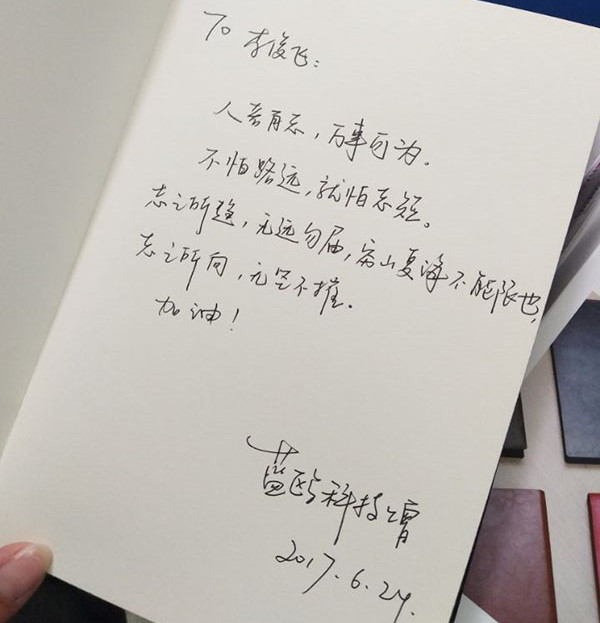 To 李俊飞：
人若有志，万事可为。
不怕路远，就怕志短。
志之所趋，无远勿届，穷山复海不能限也，
志之所向，无坚不摧。
加油！
蓝鸥科技 赠
2017.6.24.